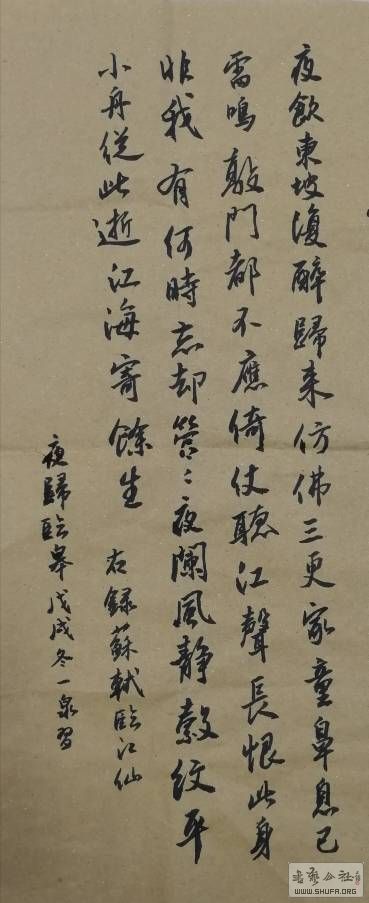 夜飲東坡復醉歸来仿佛三更家童鼻息已
雷鳴敲門都不應倚仗聽江聲長恨此身
非我有何時忘却營〻夜闌風静縠紋平
小舟從此逝江海寄餘生 右録蘇軾臨江仙
夜歸臨皋 戊戌冬一泉習
WWW.SHUFA.ORG